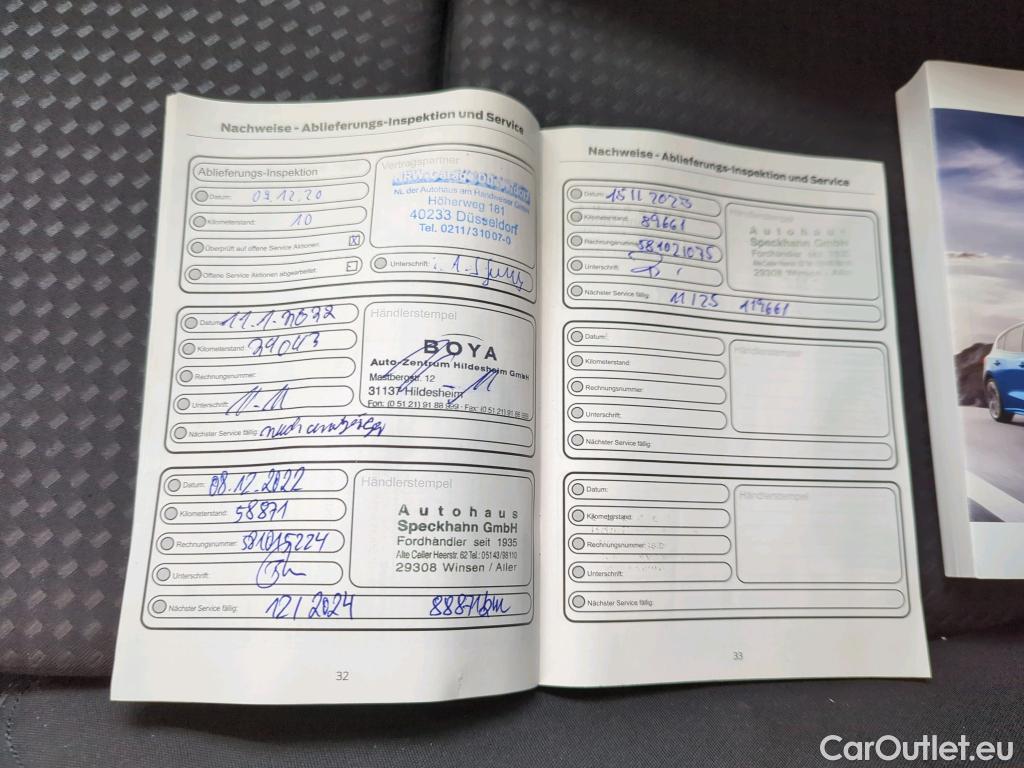 Nachweise - Ablieferungs-Inspektion und Service
Ablieferungs-Inspektion
Datum: 09.12.20
Kilometerstand: 10
Überprüft auf offene Service Aktionen: X
Offene Service Aktionen abgearbeitet:
Vertragspartner
NL der Autohaus am Handweiser GmbH
Höherweg 181
40233 Düsseldorf
Tel. 0211/31007-0
Unterschrift:
Datum: 11.1.2022
Kilometerstand: 29043
Rechnungsnummer:
Unterschrift:
Nächster Service fällig: nach anzeige
Händlerstempel
BOYA
Auto-Zentrum Hildesheim GmbH
Mastbergstr. 12
31137 Hildesheim
Fon: (0 51 21) 91 88 999 - Fax: (0 51 21) 91 88
Datum: 08.12.2022
Kilometerstand: 58871
Rechnungsnummer: 581015224
Unterschrift:
Nächster Service fällig: 12/2024 88871km
Händlerstempel
Autohaus
Speckhahn GmbH
Fordhändler seit 1935
Alte Celler Heerstr. 62 Tel.: 05143/98110
29308 Winsen / Aller
32
Nachweise - Ablieferungs-Inspektion und Service
Datum: 15 11 2023
Kilometerstand: 89661
Rechnungsnummer: 581021075
Unterschrift:
Nächster Service fällig: 11/25 119661
Händlerstempel
Autohaus
Speckhahn GmbH
Fordhändler seit 1935
29308 Winsen / Aller
Datum:
Kilometerstand:
Rechnungsnummer:
Unterschrift:
Nächster Service fällig:
Händlerstempel
Datum:
Kilometerstand:
Rechnungsnummer:
Unterschrift:
Nächster Service fällig:
Händlerstempel
33
CarOutlet.eu